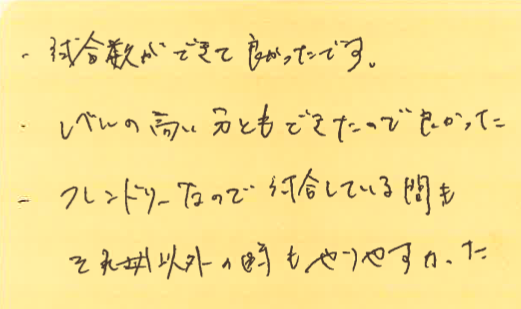 ・試合数ができて良かったです。
・レベルの高い方ともできたので良かった
・フレンドリーなので試合している間も
それ以外の時もやりやすかった